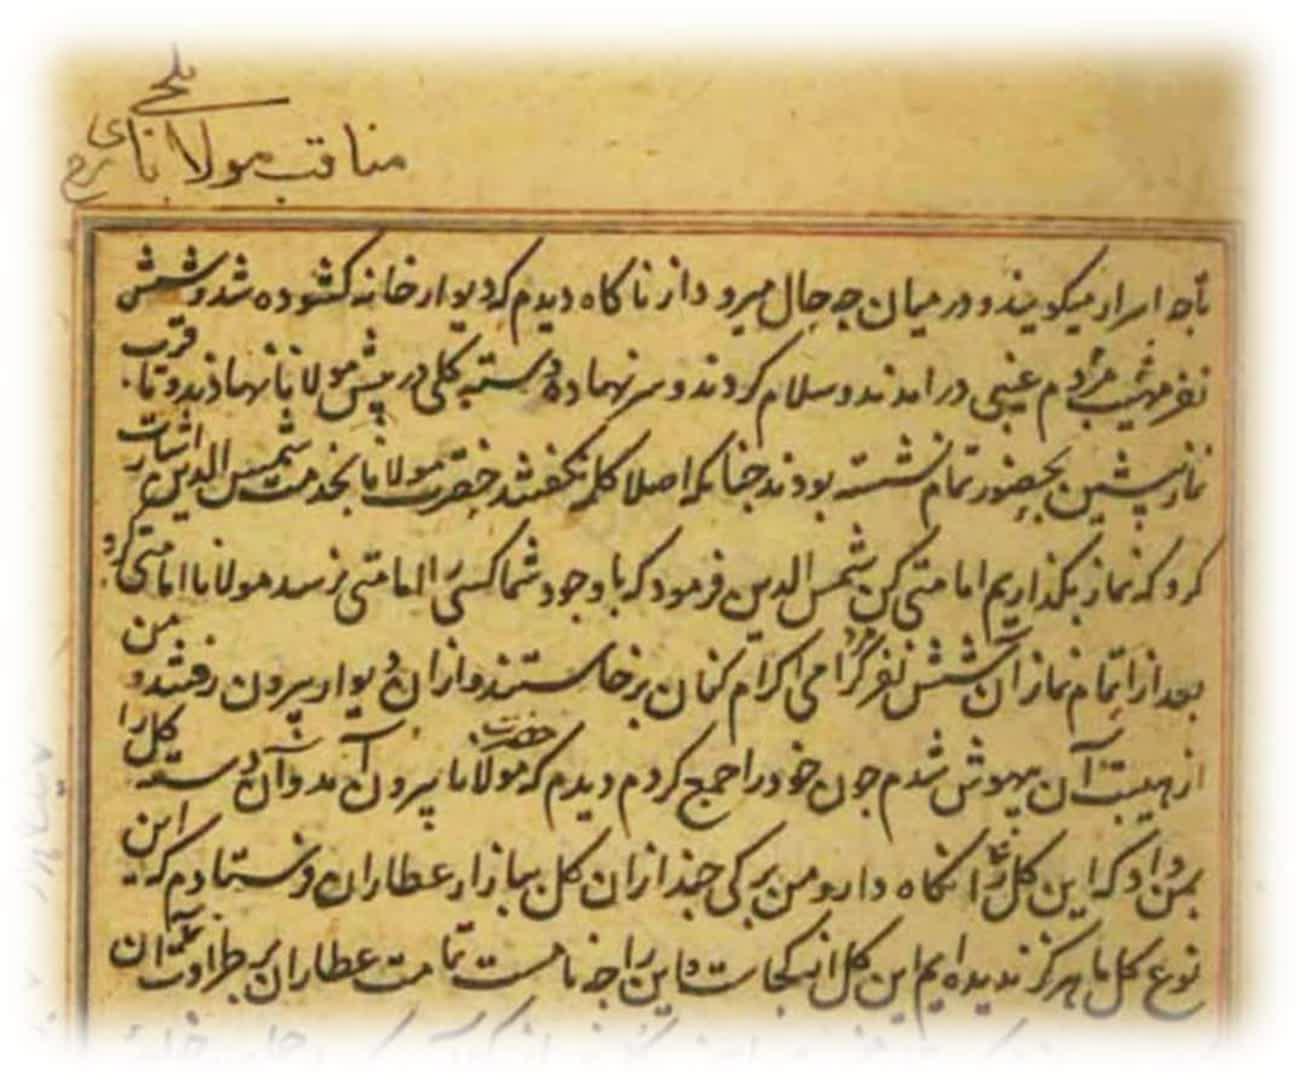 بلخی
مناقب مولانای رح
تا چه اسرار میکویند و در میان چه حال میرود از ناکاه دیدم که دیوار خانه کشوده شد و شش
نفر مهیب مردم غیبی در امدند و سلام کردند و سر نهاده دسته کلی در پیش مولانا نهادند و تا قرب
نماز پیشین بحضور تمام نشسته بودند چنانکه اصلا کلمه نکفتند حضرت مولانا بخدمت شمس الدین اشارت
کرد که نماز بکذاریم امامتی کن شمس الدین فرمود که با وجود شما کسی را امامتی نرسد مولانا امامتی کرد
بعد از اتمام نماز آن شش نفر کرامی اکرام کنان برخاستند و از ان دیوار بیرون رفتند و من
از هیبت آن بیهوش شدم چون خود را جمع کردم دیدم که حضرت مولانا بیرون آمد و آن دسته کل را
بمن داد که این کل را نکاه دار و من برکی چند از ان کل ببازار عطاران فرستادم که این
نوع کل ما هرکز ندیده ایم این کل از کجاست و این را چه نامست تمامت عطاران بر طراوت آن